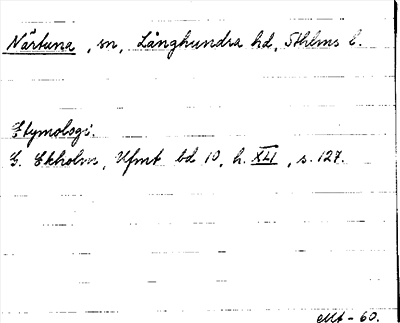 Närtuna, sn, Långhundra hd, Sthlms l.
Etymologi.
G. Ekholm, Ufmt bd 10, h. XLI, s. 127.
EMt - 60.